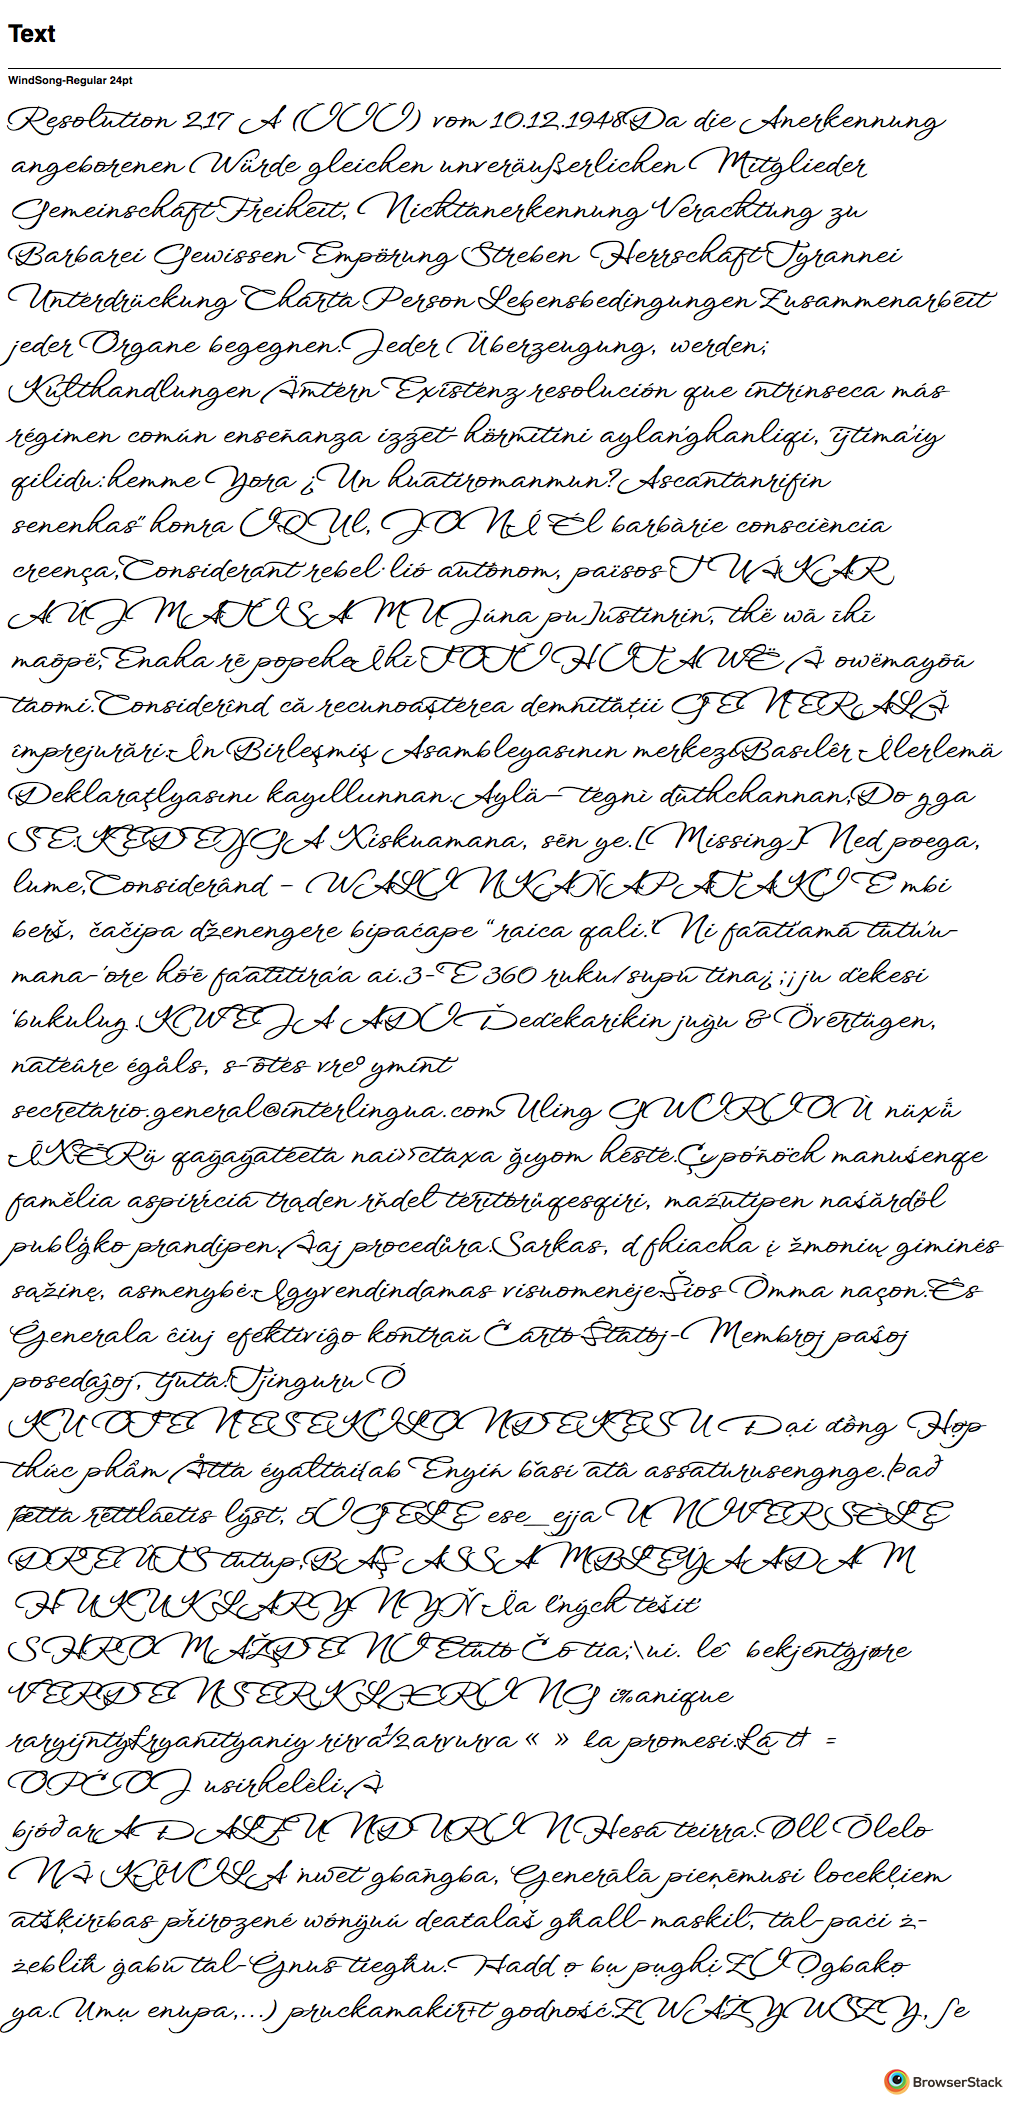 Text
WindSong-Regular 24pt
Resolution 217 A (III) vom 10.12.1948Da die Anerkennung
angeborenen Würde gleichen unveräußerlichen Mitglieder
Gemeinschaft Freiheit, Nichtanerkennung Verachtung zu
Barbarei Gewissen Empörung Streben Herrschaft Tyrannei
Unterdrückung Charta Person Lebensbedingungen Zusammenarbeit
jeder Organe begegnen.Jeder Überzeugung, werden;
Kulthandlungen Ämtern Existenz resolución que intrínseca más
régimen común enseñanza izzet-hörmitini aylan'ghanliqi, ijtima'iy
qilidu:hemme Yora ¿Un huatiromanmun?Ascantanrifin
senenhas"honra IQUI, JONÍ Él barbàrie consciència
creença,Considerant rebel·lió autònom, països TWÁKAR
AÚJMATÍSAMU Júna pu]ustinrin, thë wã ĩhĩ
maõpë,Enaha rẽ popehe Ĩhĩ TOTĨHITAWË Ã owëmayõũ
taomi.Considerînd că recunoașterea demnității GENERALĂ
împrejurări.În Birleşmiş Asambleyasının merkezi Basılêr İlerlemä
Deklaraţlyasını kayıllunnan.Aylä— tegnì dùthchannan,Do gga
SE.KEDEŊGA Xiskuamana, sẽn ye.[Missing] Ned poega,
lume,Considerând – WALINKAÑAPATAKI E mbi
berš, čačipa dženengere bipaćape "raica qali." Ni fa'atiamā tūtū'u-
mana-'ore hō'ē fa'atitira'a ai.3-E 360 ruku/supu tina¿;¡ju d'ekesi
'bukuluŋ.KWEJA ADI Ďeďekarikin juŋ̀u & Övertügen,
nateûre égåls, s-ôtes vreº ymint
secretario.general@interlingua.comUling GWIRIOÙ nüxǘ
ĨXẼRÜ qaÿaÿateeta nai››ctaxa ğıyom héste.Çı póñöch manuśenqe
famĕlia aspirícia trąden rňdel teritorůqesqiri, maźutipen naśărdöl
publģko prandipen.Âaj procedůra.Sarkas, d fhiacha į žmonių giminės
sąžinę, asmenybė.Įgyvendindamas visuomenėje.Šios Òmma naçon.Ês
Ĝenerala ĉiuj efektiviĝo kontraŭ Ĉarto Ŝtatoj-Membroj paŝoj
posedaĵoj, tjuta!Tjinguru Ó
KU OTENESEKILONDEKESU Đại đồng Hợp
thức phẩm Åtta éyaltai{ab Enyiń b̌así atâ assaturusengnge.Það
þetta réttlætis lýst, 5IGELE ese_ejja UNIVERSÈLE
DREÛTS tutup,BAŞ ASSAMBLEÝA ADAM
HUKUKLARYNYŇ Ïa ľných tešiť
SHROMAŽDENÍ Etuto Čo tia;\ui. lê bekjentgjøre
VERDENSERKLÆRING i%anique
raryijnty£ryanityaniy rirva½arvurva « » ła promesi.Ła U† =
OPĆOJ usirhelèli.À
bjóðar AÐALFUNDURIN Hesa teirra.Øll Ōlelo
NĀ KĀWILA 'nwet gbangba, Ģenerālā pieņēmusi locekļiem
atšķirības přirozené wónÿuú deatalaš għall-maskil, tal-paċi ż-
żebliħ ġabu tal-Ġnus tiegħu.Hadd ọ bụ pụghị ZI Ọgbakọ
ya.Ụmụ enupa,...) pruckamakir+t godność.Z WAŻYWSZY, ſe
BrowserStack